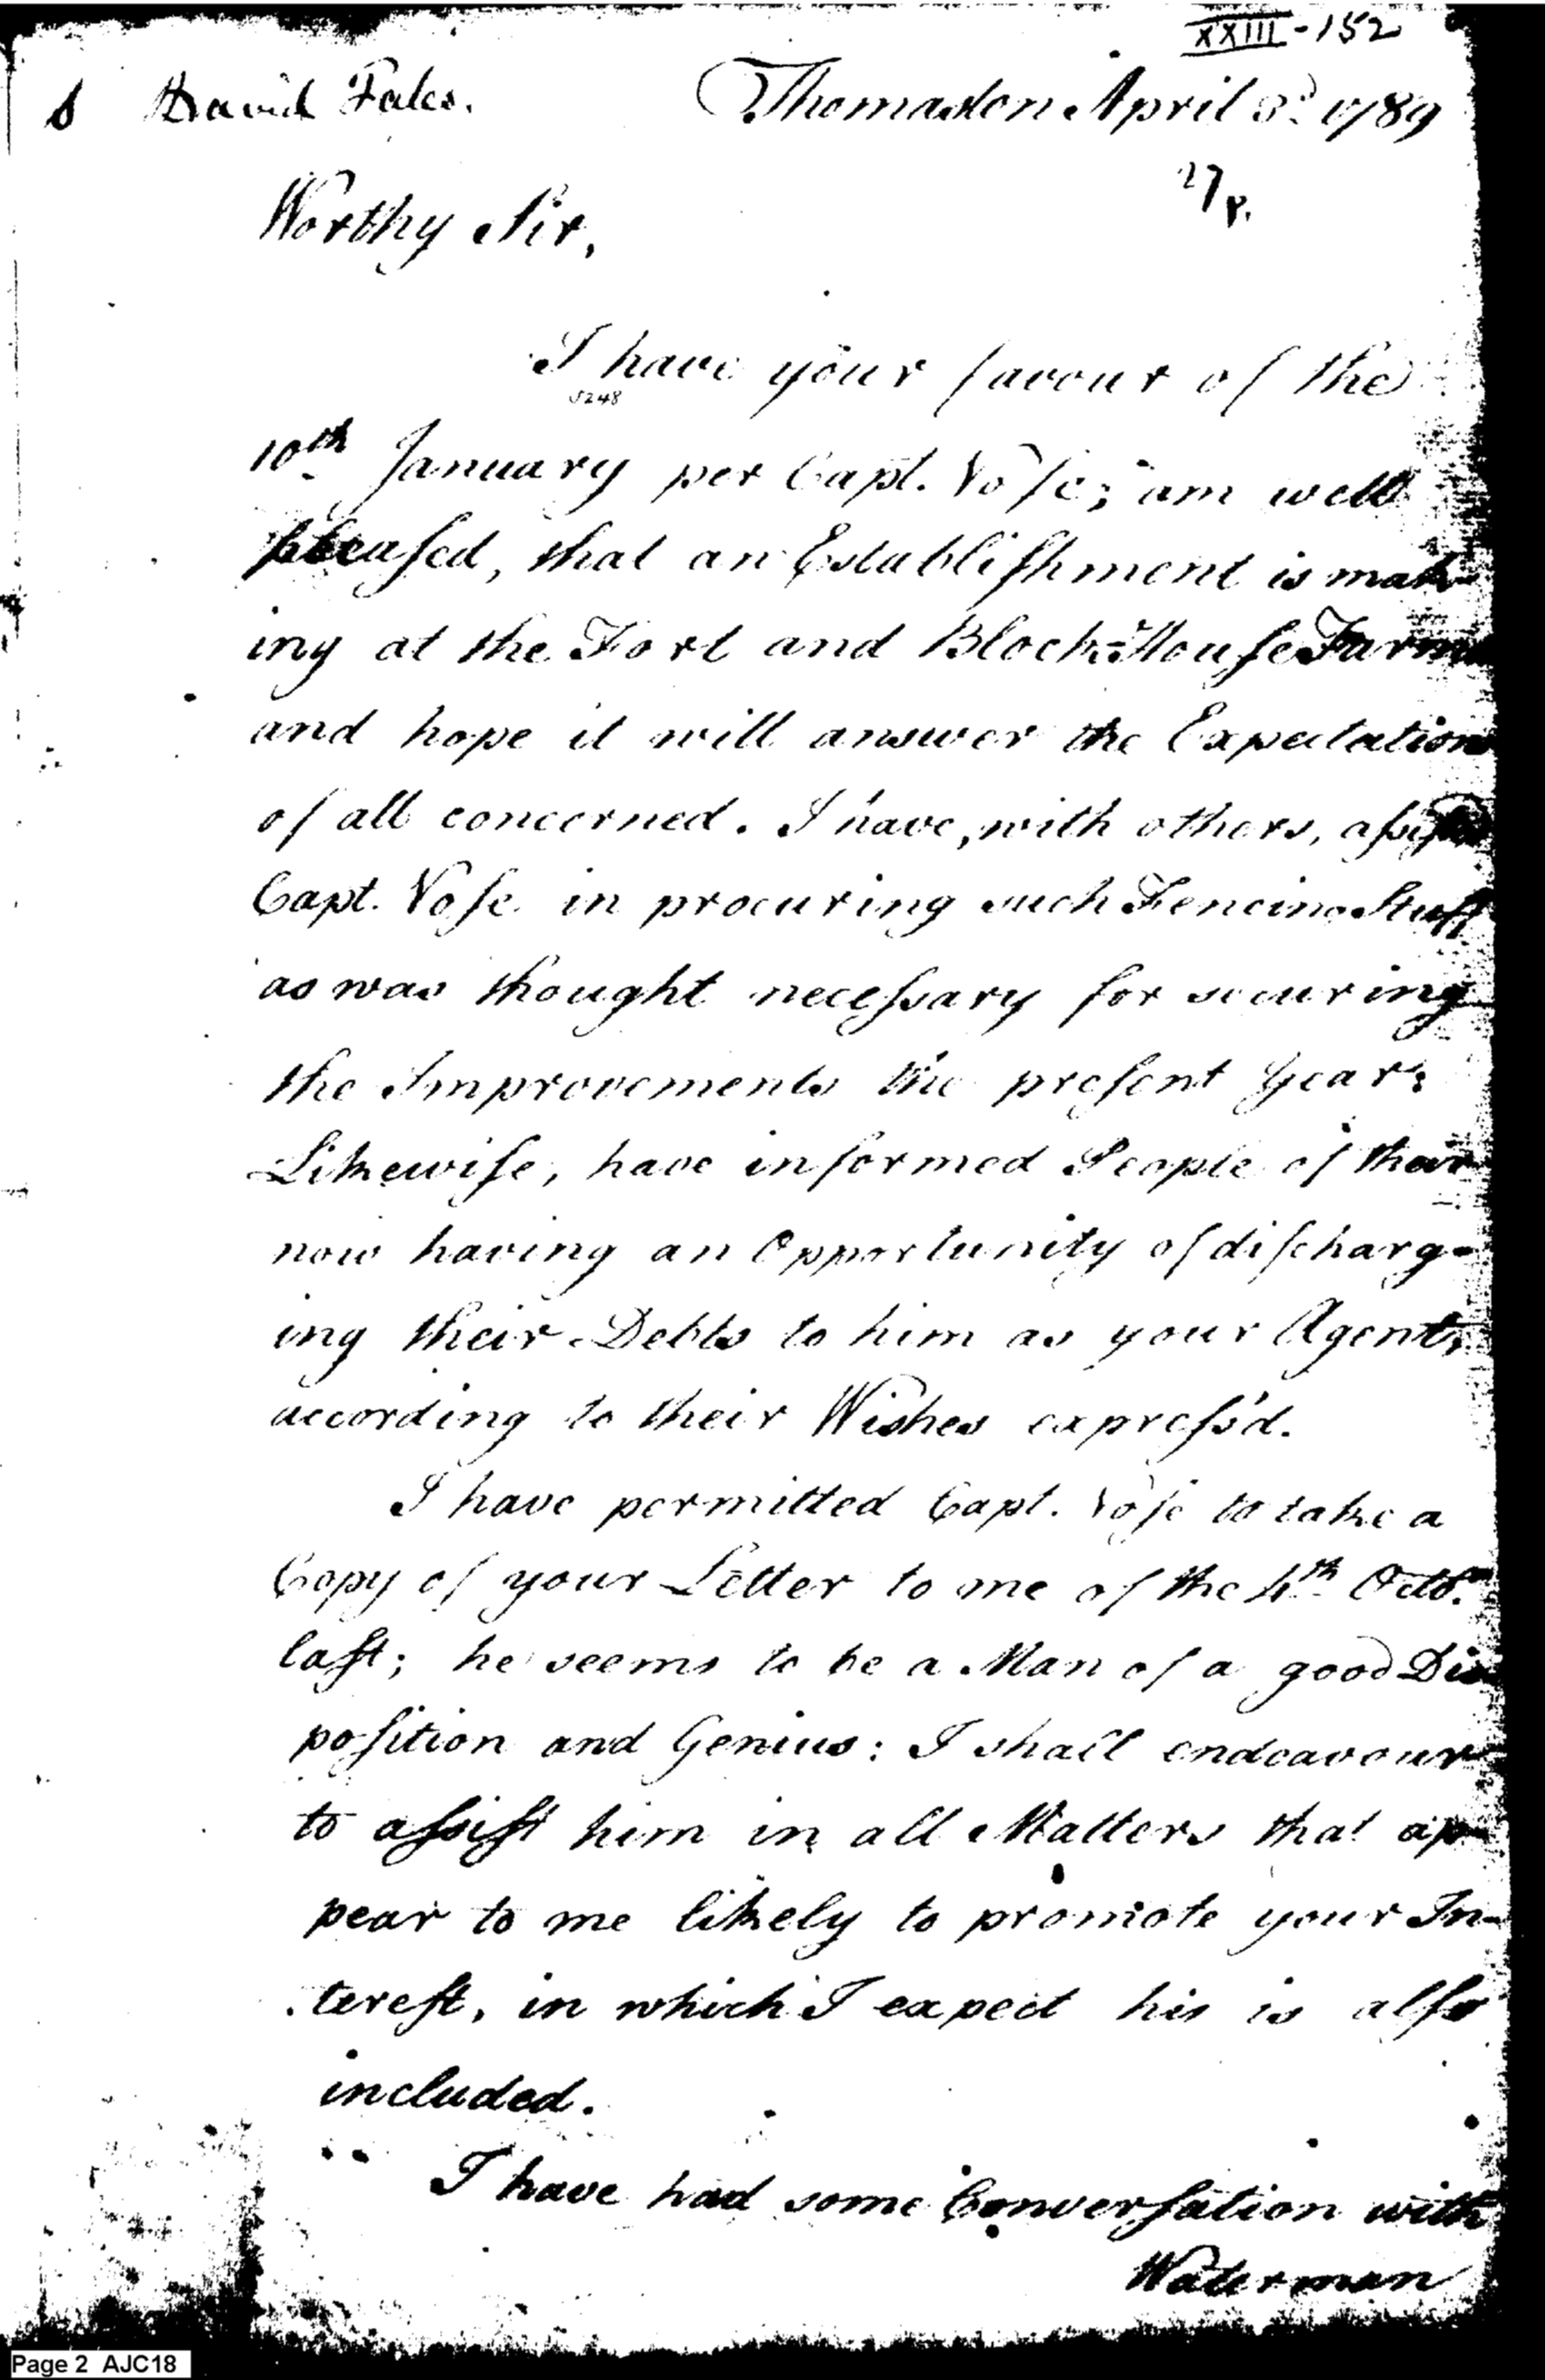 XXIII-152
David Fales. Thomaston April 3d 1789
27 p.
Worthy Sir,
I have your favour of the
5248
10th January per Capt. Vose; am well
pleased, that an Establishment is mak-
ing at the Fort and Block-House Farms
and hope it will answer the Expectations
of all concerned. I have, with others, assisted
Capt. Vose in procuring such Fencing Stuff
as was thought necessary for securing
the Improvements the present Year:
Likewise, have informed People of their
now having an Opportunity of discharg-
ing their Debts to him as your Agent,
according to their Wishes express'd.
I have permitted Capt. Vose to take a
Copy of your Letter to me of the 4th Octb.
last; he seems to be a Man of a good Dis
position and Genius: I shall endeavour
to assist him in all Matters that ap-
pear to me likely to promote your In-
terest, in which I expect his is also
included.
I have had some Conversation with
Waterman
Page 2 AJC18